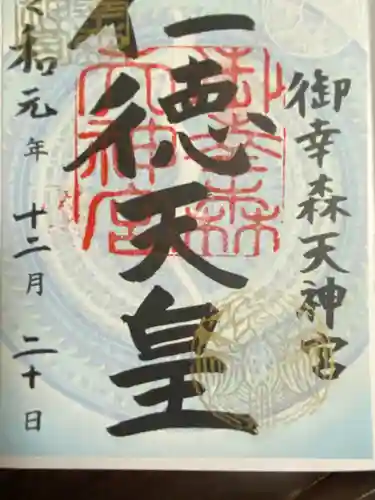 御幸森天神宮
徳天皇
令和元年十二月二十日
御幸森
天神宮